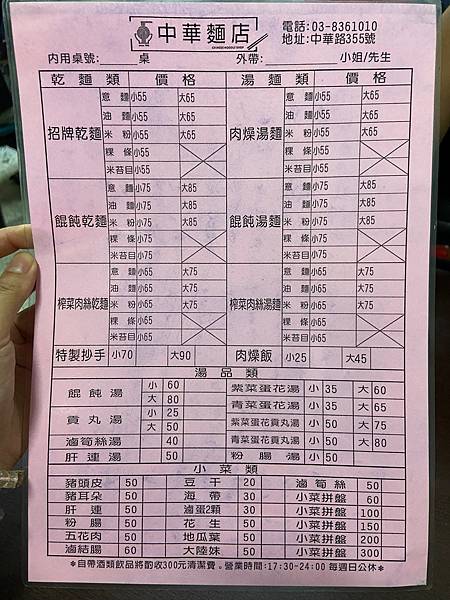 中華麵店
CHINESE NOODLE SHOP
電話:03-8361010
地址:中華路355號
內用桌號:　桌　外帶:　小姐/先生
乾麵類　價格　湯麵類　價格
招牌乾麵　肉燥湯麵
意麵 小55 大65　意麵 小55 大65
油麵 小55 大65　油麵 小55 大65
米粉 小55 大65　米粉 小55 大65
粿條 小55　粿條 小55
米苔目 小55　米苔目 小55
餛飩乾麵　餛飩湯麵
意麵 小75 大85　意麵 小75 大85
油麵 小75 大85　油麵 小75 大85
米粉 小75 大85　米粉 小75 大85
粿條 小75　粿條 小75
米苔目 小75　米苔目 小75
榨菜肉絲乾麵　榨菜肉絲湯麵
意麵 小65 大75　意麵 小65 大75
油麵 小65 大75　油麵 小65 大75
米粉 小65 大75　米粉 小65 大75
粿條 小65　粿條 小65
米苔目 小65　米苔目 小65
特製抄手 小70 大90　肉燥飯 小25 大45
湯品類
餛飩湯 小 60　紫菜蛋花湯 小 35 大 60
大 80　青菜蛋花湯 小 35 大 65
貢丸湯 小 25　紫菜蛋花貢丸湯 小 50 大 75
大 50　青菜蛋花貢丸湯 小 50 大 80
滷筍絲湯 40　粉腸湯 小 50
肝連湯 50
小菜類
豬頭皮 50　豆干 20　滷筍絲 50
豬耳朵 50　海帶 30　小菜拼盤 60
肝連 50　滷蛋2顆 30　小菜拼盤 100
粉腸 50　花生 50　小菜拼盤 150
五花肉 60　地瓜葉 50　小菜拼盤 200
滷結腸 60　大陸妹 50　小菜拼盤 300
*自帶酒類飲品將酌收300元清潔費。營業時間:17:30-24:00 每週日公休*